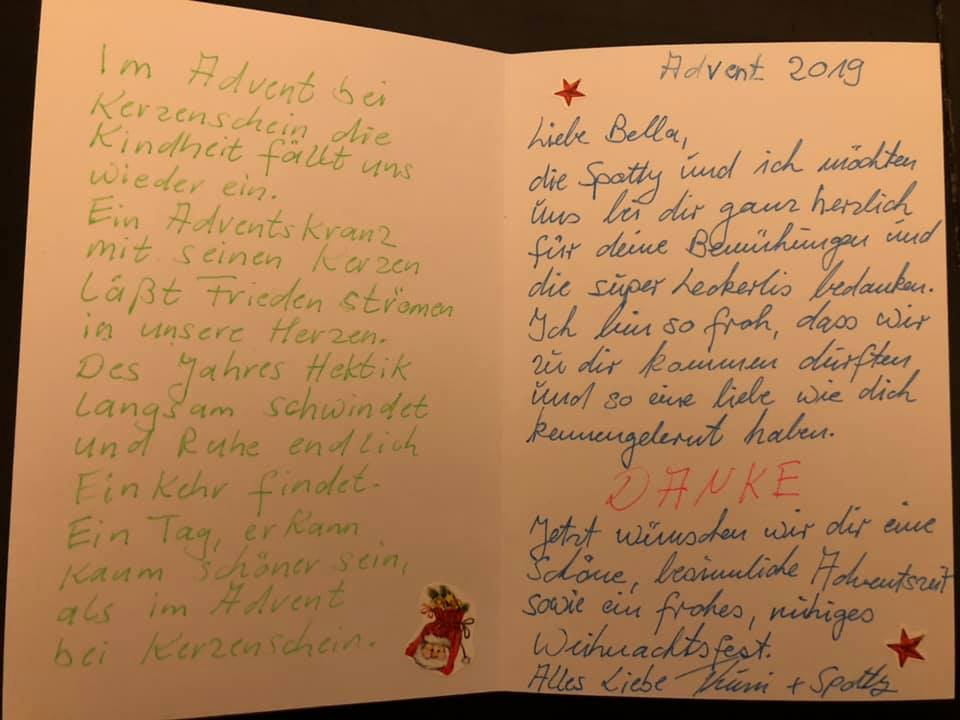 Im Advent bei
Kerzenschein die
Kindheit fällt uns
wieder ein.
Ein Adventskranz
mit seinen Kerzen
Läßt Frieden strömen
in unsere Herzen.
Des Jahres Hektik
langsam schwindet
und Ruhe endlich
Einkehr findet.
Ein Tag, er kann
kaum schöner sein,
als im Advent
bei Kerzenschein.
Advent 2019
Liebe Bella,
die Spotty und ich möchten
uns bei dir ganz herzlich
für deine Bemühungen und
die super Leckerlis bedanken.
Ich bin so froh, dass wir
zu dir kommen durften
und so eine liebe wie dich
kennengelernt haben.
DANKE
Jetzt wünschen wir dir eine
schöne, besinnliche Adventszeit
sowie ein frohes, ruhiges
Weihnachtsfest.
Alles Liebe + Spotty